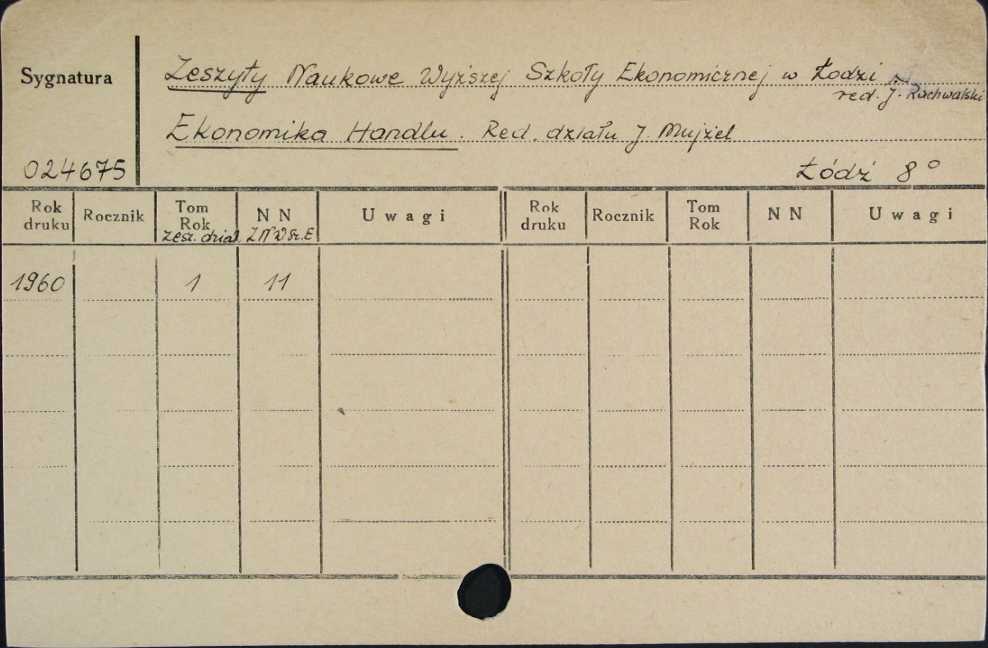 Sygnatura
Zeszyty Naukowe Wyższej Szkoły Ekonomicznej w Łodzi
red. J. Rachwalski
Ekonomika Handlu. Red. działu J. Mujżel
024675
Łódź 8°
Rok druku Rocznik Tom Rok NN Uwagi Rok druku Rocznik Tom Rok NN Uwagi
zesz. dział. ZNWSzE
1960 1 11